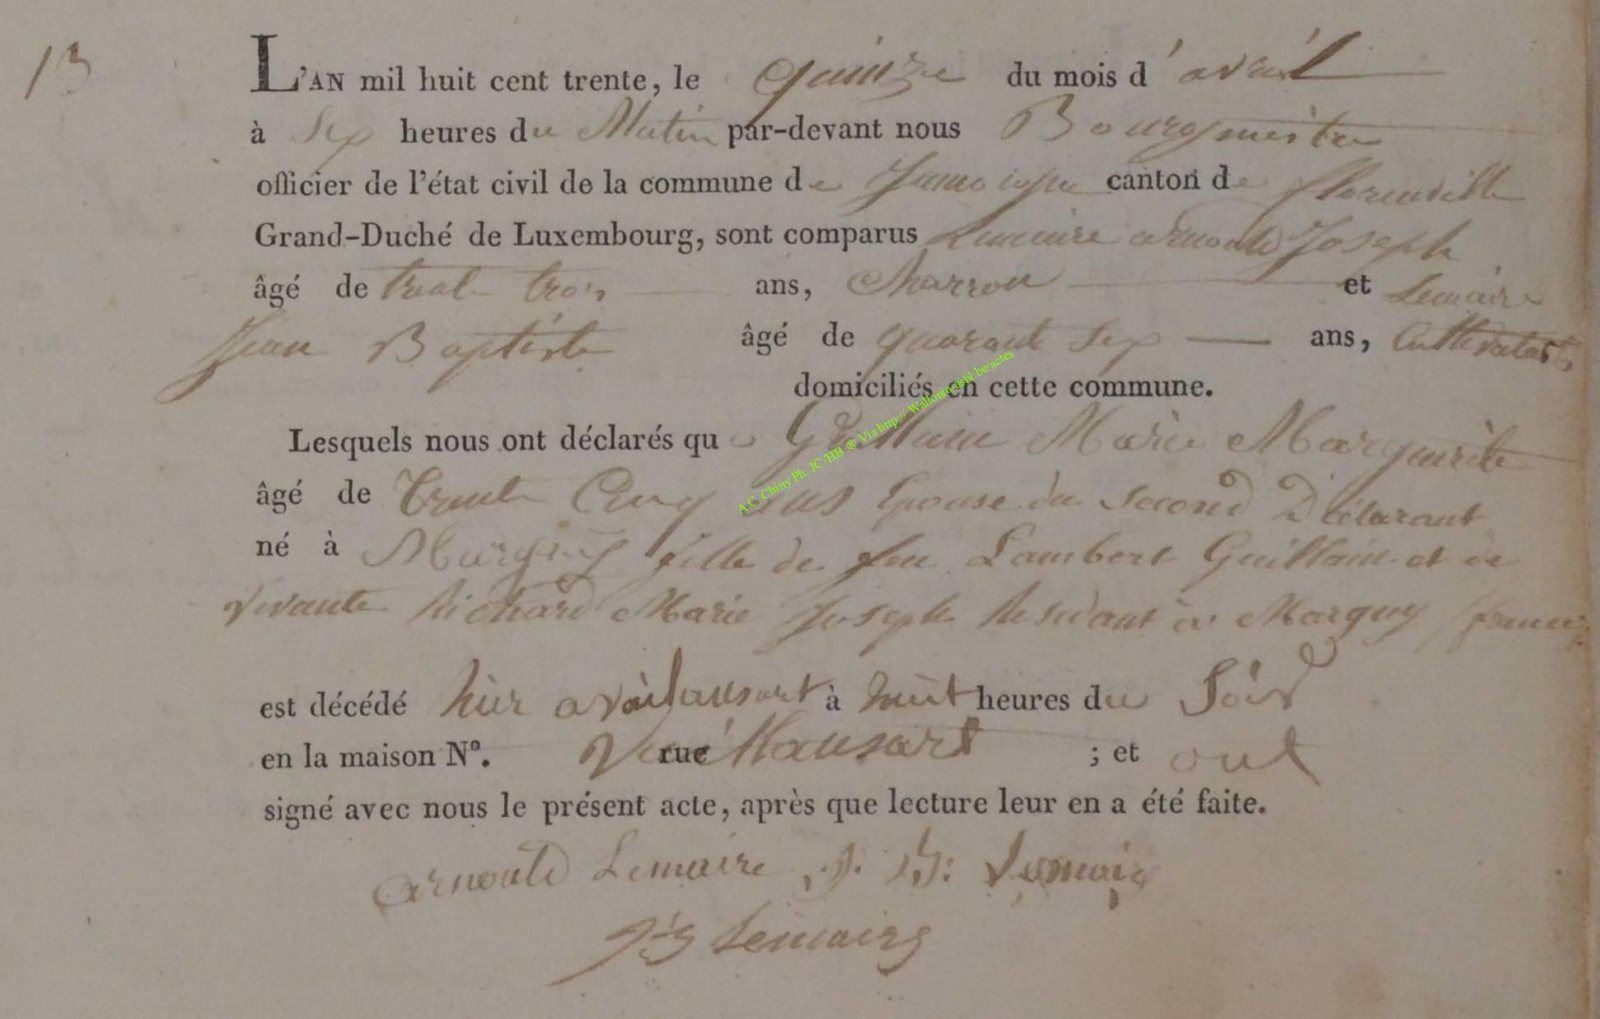 13
L'AN mil huit cent trente, le quinze du mois d'avril
à Six heures du Matin par-devant nous Bourgmestre
officier de l'état civil de la commune de Jamoigne canton de florenville
Grand-Duché de Luxembourg, sont comparus Lemaire arnould Joseph
âgé de trente trois ans, Charron et Lemaire
Jean Baptiste âgé de quarante Six ans, Cultivateur
domiciliés en cette commune.
Lesquels nous ont déclarés que Guillain Marie Marguerite
âgé de trente Cinq ans Epouse du Second Déclarant
né à Marguy fille de feu Lambert Guillain et de
vivante Richard Marie Joseph Residant à Marguy france
est décédé hier à huit heures du Soir
en la maison Nº. rue ; et ont
signé avec nous le présent acte, après que lecture leur en a été faite.
arnould Lemaire J. B: Lemaire
JB Lemaire
A.C. Chiny Ph. JC /HB ® Via http:// Wallonica